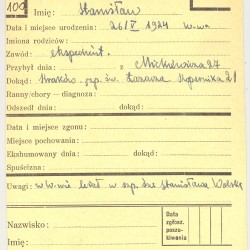 109
Imię: Stanisław
Data i miejsce urodzenia: 26/V 1924 W-wa
Imiona rodziców:
Zawód: ekspedient.
Przybył dnia / z Mickiewicza 27
Dokąd: Kraków, szp. św. Łazarza Kopernika 21
Ranny/chory — diagnoza:
Odszedł dnia: dokąd:
Data i miejsce zgonu:
Miejsce pochowania:
Ekshumowany dnia: dokąd:
Spuścizna:
Uwagi: w W-wie leżał w szp. Stanisława Wolska
Nazwisko:
Imię:
Data
zgłosz.
poszu-
kiwania